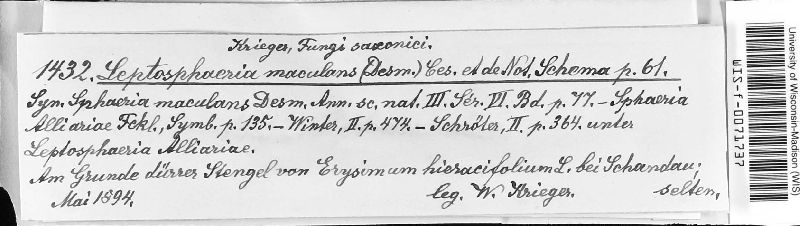 Krieger, Fungi saxonici.
1432. Leptosphaeria maculans (Desm.) Ces. et de Not. Schema p. 61.
Syn. Sphaeria maculans Desm. Ann. sc. nat. III. Sér. VI. Bd. p. 77. – Sphaeria
Alliariae Fckl., Symb. p. 135. – Winter, II. p. 474. – Schröter, II. p. 364. unter
Leptosphaeria Alliariae.
Am Grunde dürrer Stengel von Erysimum hieracifolium L. bei Schandau;
Mai 1894. leg. W. Krieger. selten.
WIS-f-0071737
University of Wisconsin-Madison (WIS)